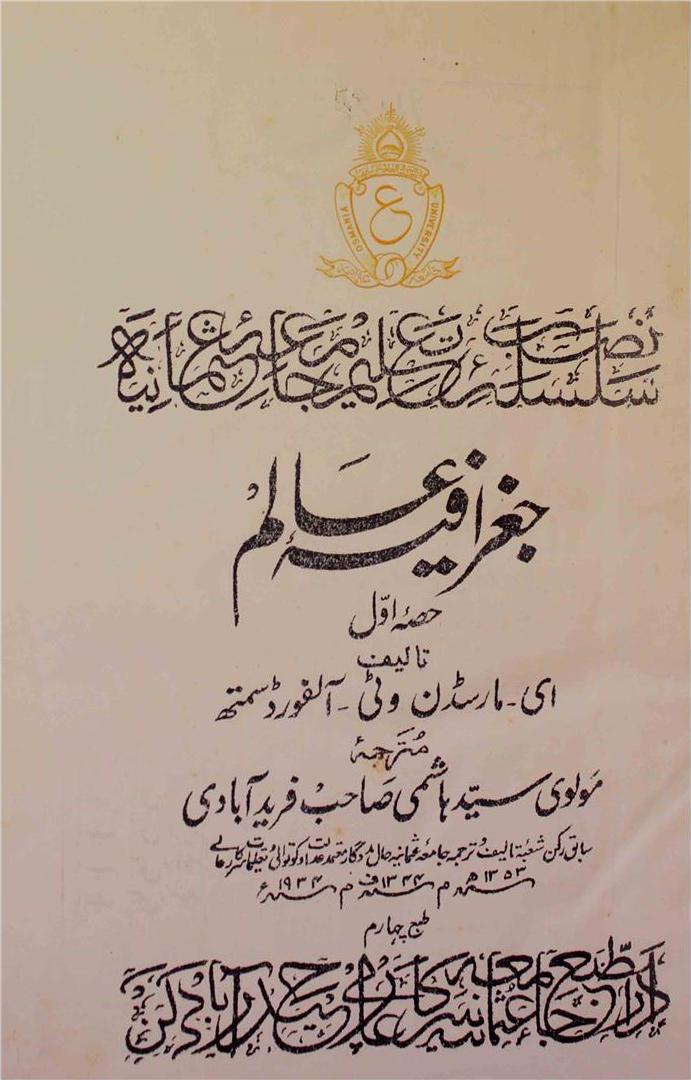 OSMANIA UNIVERSITY
سلسلۂ نصاب تعلیمات جامعۂ عثمانیہ
جغرافیۂ عالم
حصۂ اوّل
تالیف
ای۔ مارسڈن وٹی۔ آلفورڈ سمتھ
مُترجمۂ
مولوی سیّد ہاشمی صاحب فرید آبادی
سابق رکن شعبۂ تالیف و ترجمہ جامعۂ عثمانیہ حال مددگار معتمد عدالت و کوتوالی و تعلیمات سرکار عالی
۱۳۵۳ھ م ۱۳۴۴ف م ۱۹۳۴ء
طبع چہارم
دارالطبع جامعہ عثمانیہ سرکار عالی حیدرآباد دکن